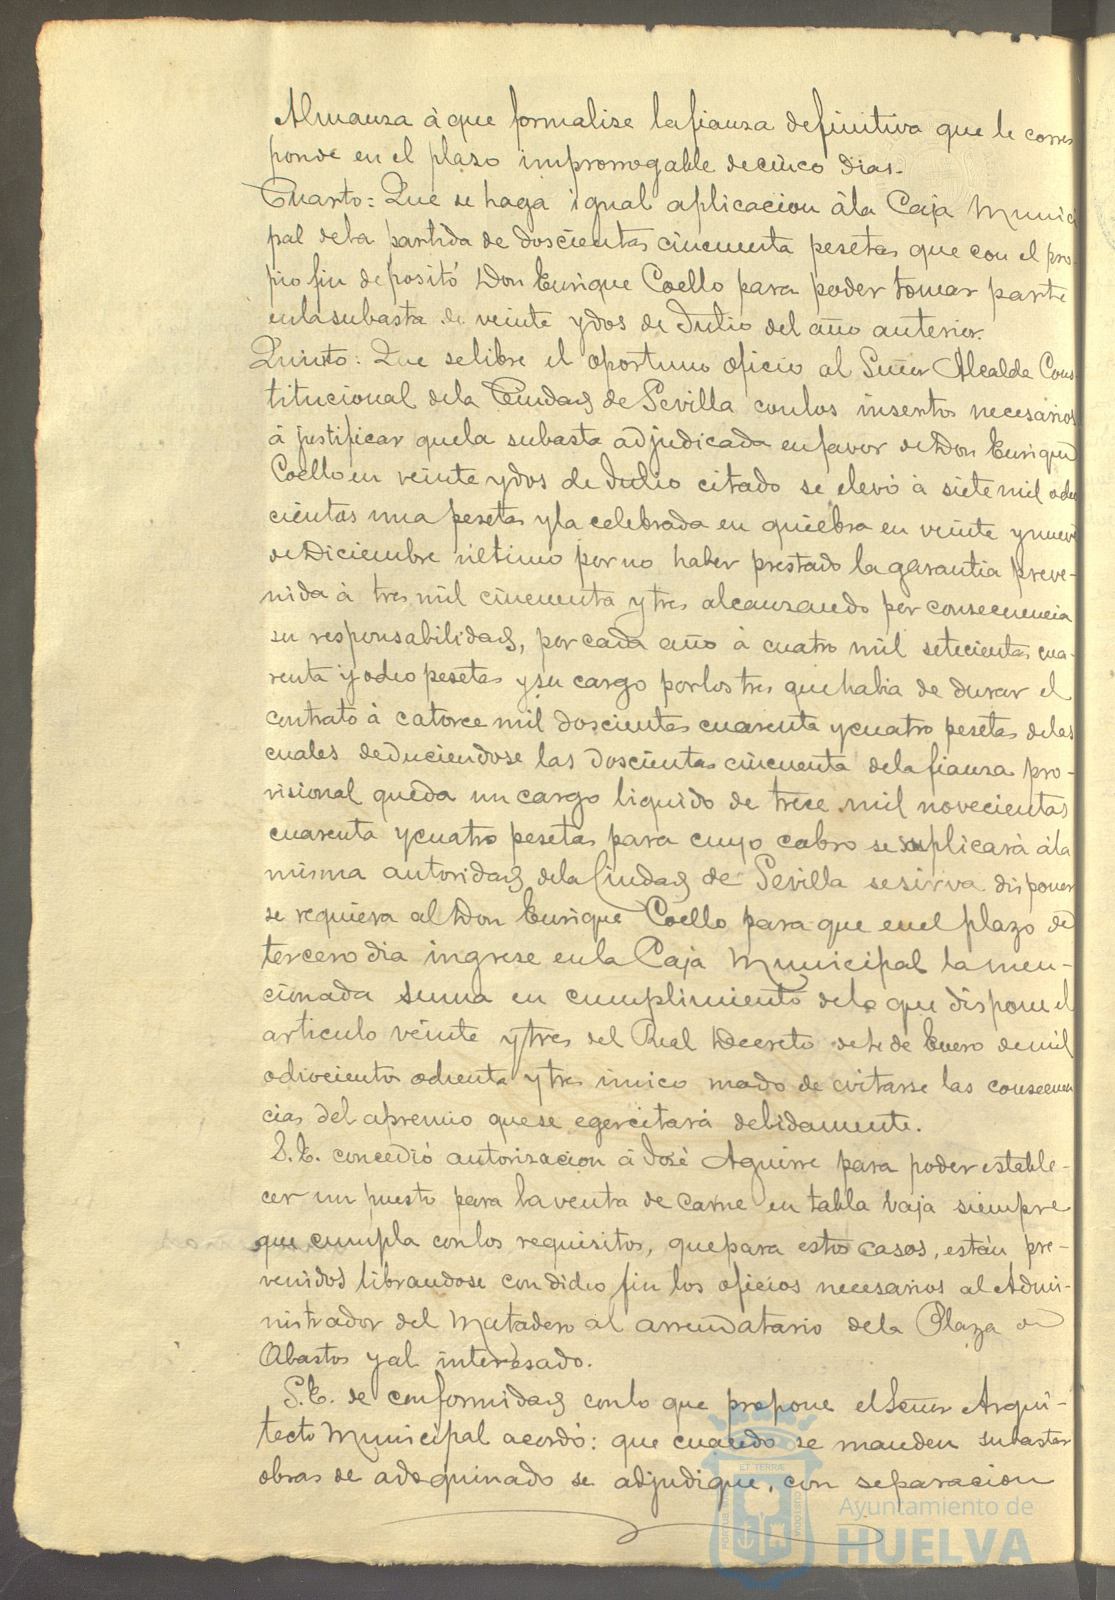 Almansa á que formalise la fianza definitiva que le corres
ponde en el plaso improrrogable de cinco dias.
Cuarto: Que se haga igual aplicacion á la Caja Munici
pal de la partida de doscientas cincuenta pesetas que con el pro-
pio fin depositó Don Enrique Coello para poder tomar parte
en la subasta de veinte y dos de Julio del año anterior.
Quinto: Que se libre el oportuno oficio al Señor Alcalde Cons
titucional de la Ciudad de Sevilla con los insertos necesarios
á justificar que la subasta adjudicada en favor de Don Enrique
Coello en veinte y dos de Julio citado se elevó á siete mil ocho
cientas una pesetas y la celebrada en quiebra en veinte y nueve
de Diciembre último por no haber prestado la garantia preve-
nida á tres mil cincuenta y tres alcanzando por consecuencia
su responsabilidad, por cada año á cuatro mil setecientas cua-
renta y ocho pesetas y su cargo por los tres que habia de durar el
contrato á catorce mil doscientas cuarenta y cuatro pesetas de las
cuales deduciendose las doscientas cincuenta de la fianza pro-
visional queda un cargo liquido de trece mil novecientas
cuarenta y cuatro pesetas para cuyo cobro se suplicará á la
misma autoridad de la Ciudad de Sevilla se sirva disponer
se requiera al Don Enrique Coello para que en el plazo de
tercero dia ingrese en la Caja Municipal la men-
cionada suma en cumplimiento de lo que dispone el
articulo veinte y tres del Real Decreto de 4 de Enero de mil
ochocientos ochenta y tres único modo de evitarse las consecuen
cias del apremio que se egercitará debidamente.
S.E. concedió autorisacion á José Aguirre para poder estable-
cer un puesto para la venta de carne en tabla baja siempre
que cumpla con los requisitos, que para estos casos, están pre-
venidos librandose con dicho fin los oficios necesarios al Admi-
nistrador del Matadero al arrendatario de la Plaza de
Abastos y al interesado.
S.E. de conformidad con lo que propone el Señor Arqui-
tecto Municipal acordó: que cuando se manden subastar
obras de adoquinado se adjudique, con separacion
Ayuntamiento de
HUELVA